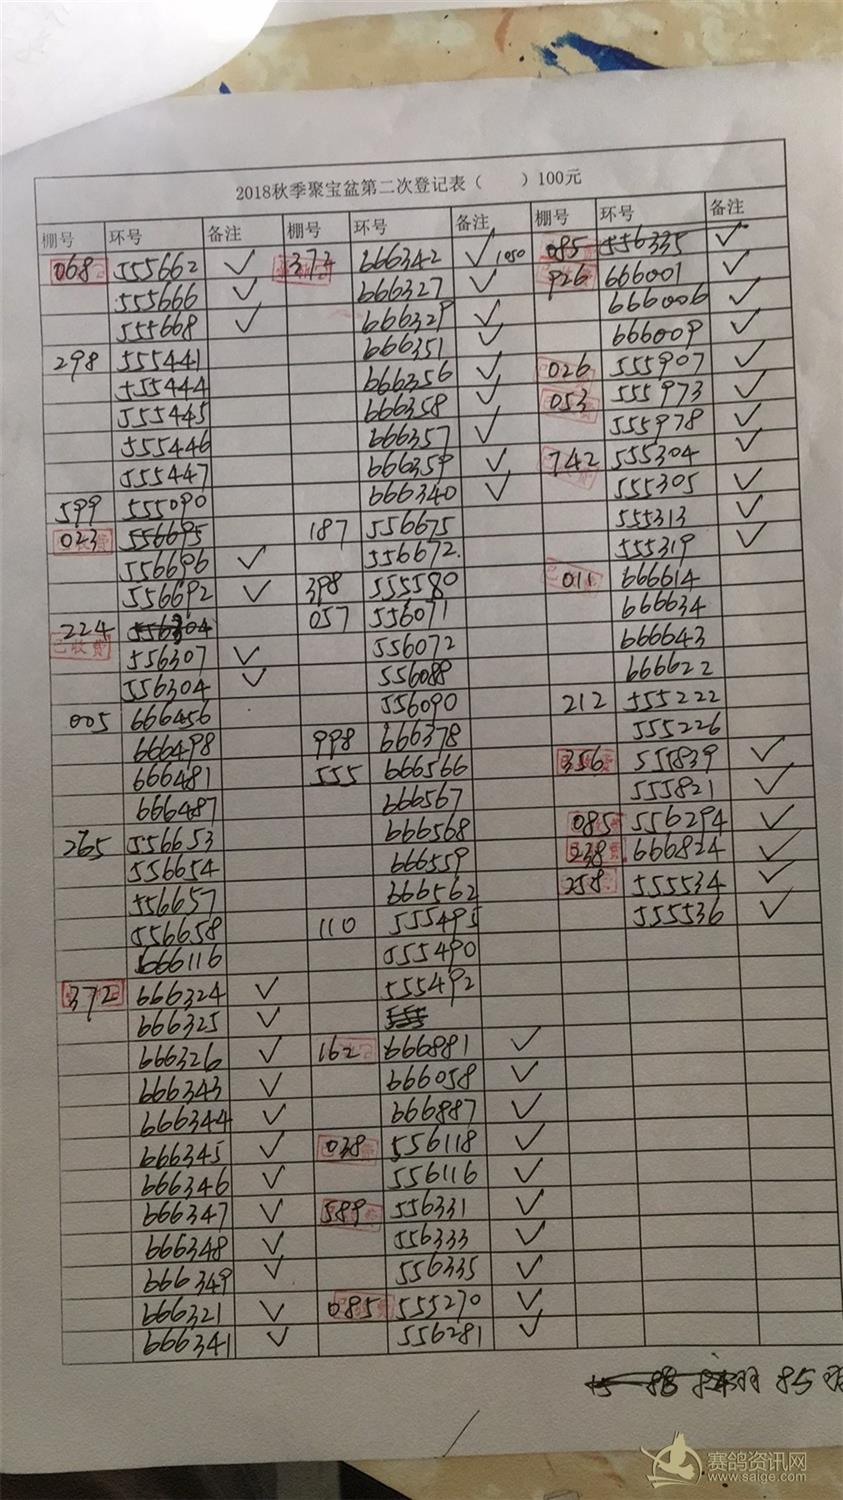 2018秋季聚宝盆第二次登记表（ ）100元
棚号 环号 备注 棚号 环号 备注 棚号 环号 备注
068 555662 ✓ 372 666342 ✓ 1050 085 556335 ✓
555666 ✓ 666327 ✓ 926 666001 ✓
555668 ✓ 666329 ✓ 666006 ✓
298 555441 666351 ✓ 666009 ✓
555444 666356 ✓ 026 555907 ✓
555445 666358 ✓ 053 555973 ✓
555446 666357 ✓ 555978 ✓
555447 666359 ✓ 742 555304 ✓
599 555090 666340 ✓ 555305 ✓
023 556695 187 556675 555313 ✓
556696 ✓ 556672. 555319 ✓
556692 ✓ 398 555580 011 666614
224 556304 057 556071 666634
已收费 556307 ✓ 556072 666643
556304 ✓ 556088 666622
005 666456 556090 212 555222
666498 998 666378 555226
666481 555 666566 356 555839 ✓
666487 666567 555821 ✓
265 556653 666568 085 556294 ✓
556654 666559 238 666824 ✓
556657 666562 258 555534 ✓
556658 110 555495 555536 ✓
666116 555490
372 666324 ✓ 555492
666325 ✓ 555
666326 ✓ 162 666881 ✓
666343 ✓ 666058 ✓
666344 ✓ 666887 ✓
666345 ✓ 038 556118 ✓
666346 ✓ 556116 ✓
666347 ✓ 589 556331 ✓
666348 ✓ 556333 ✓
666349 ✓ 556335 ✓
666321 ✓ 085 555270 ✓
666341 ✓ 556281 ✓
85羽
赛鸽资讯网
www.saige.com